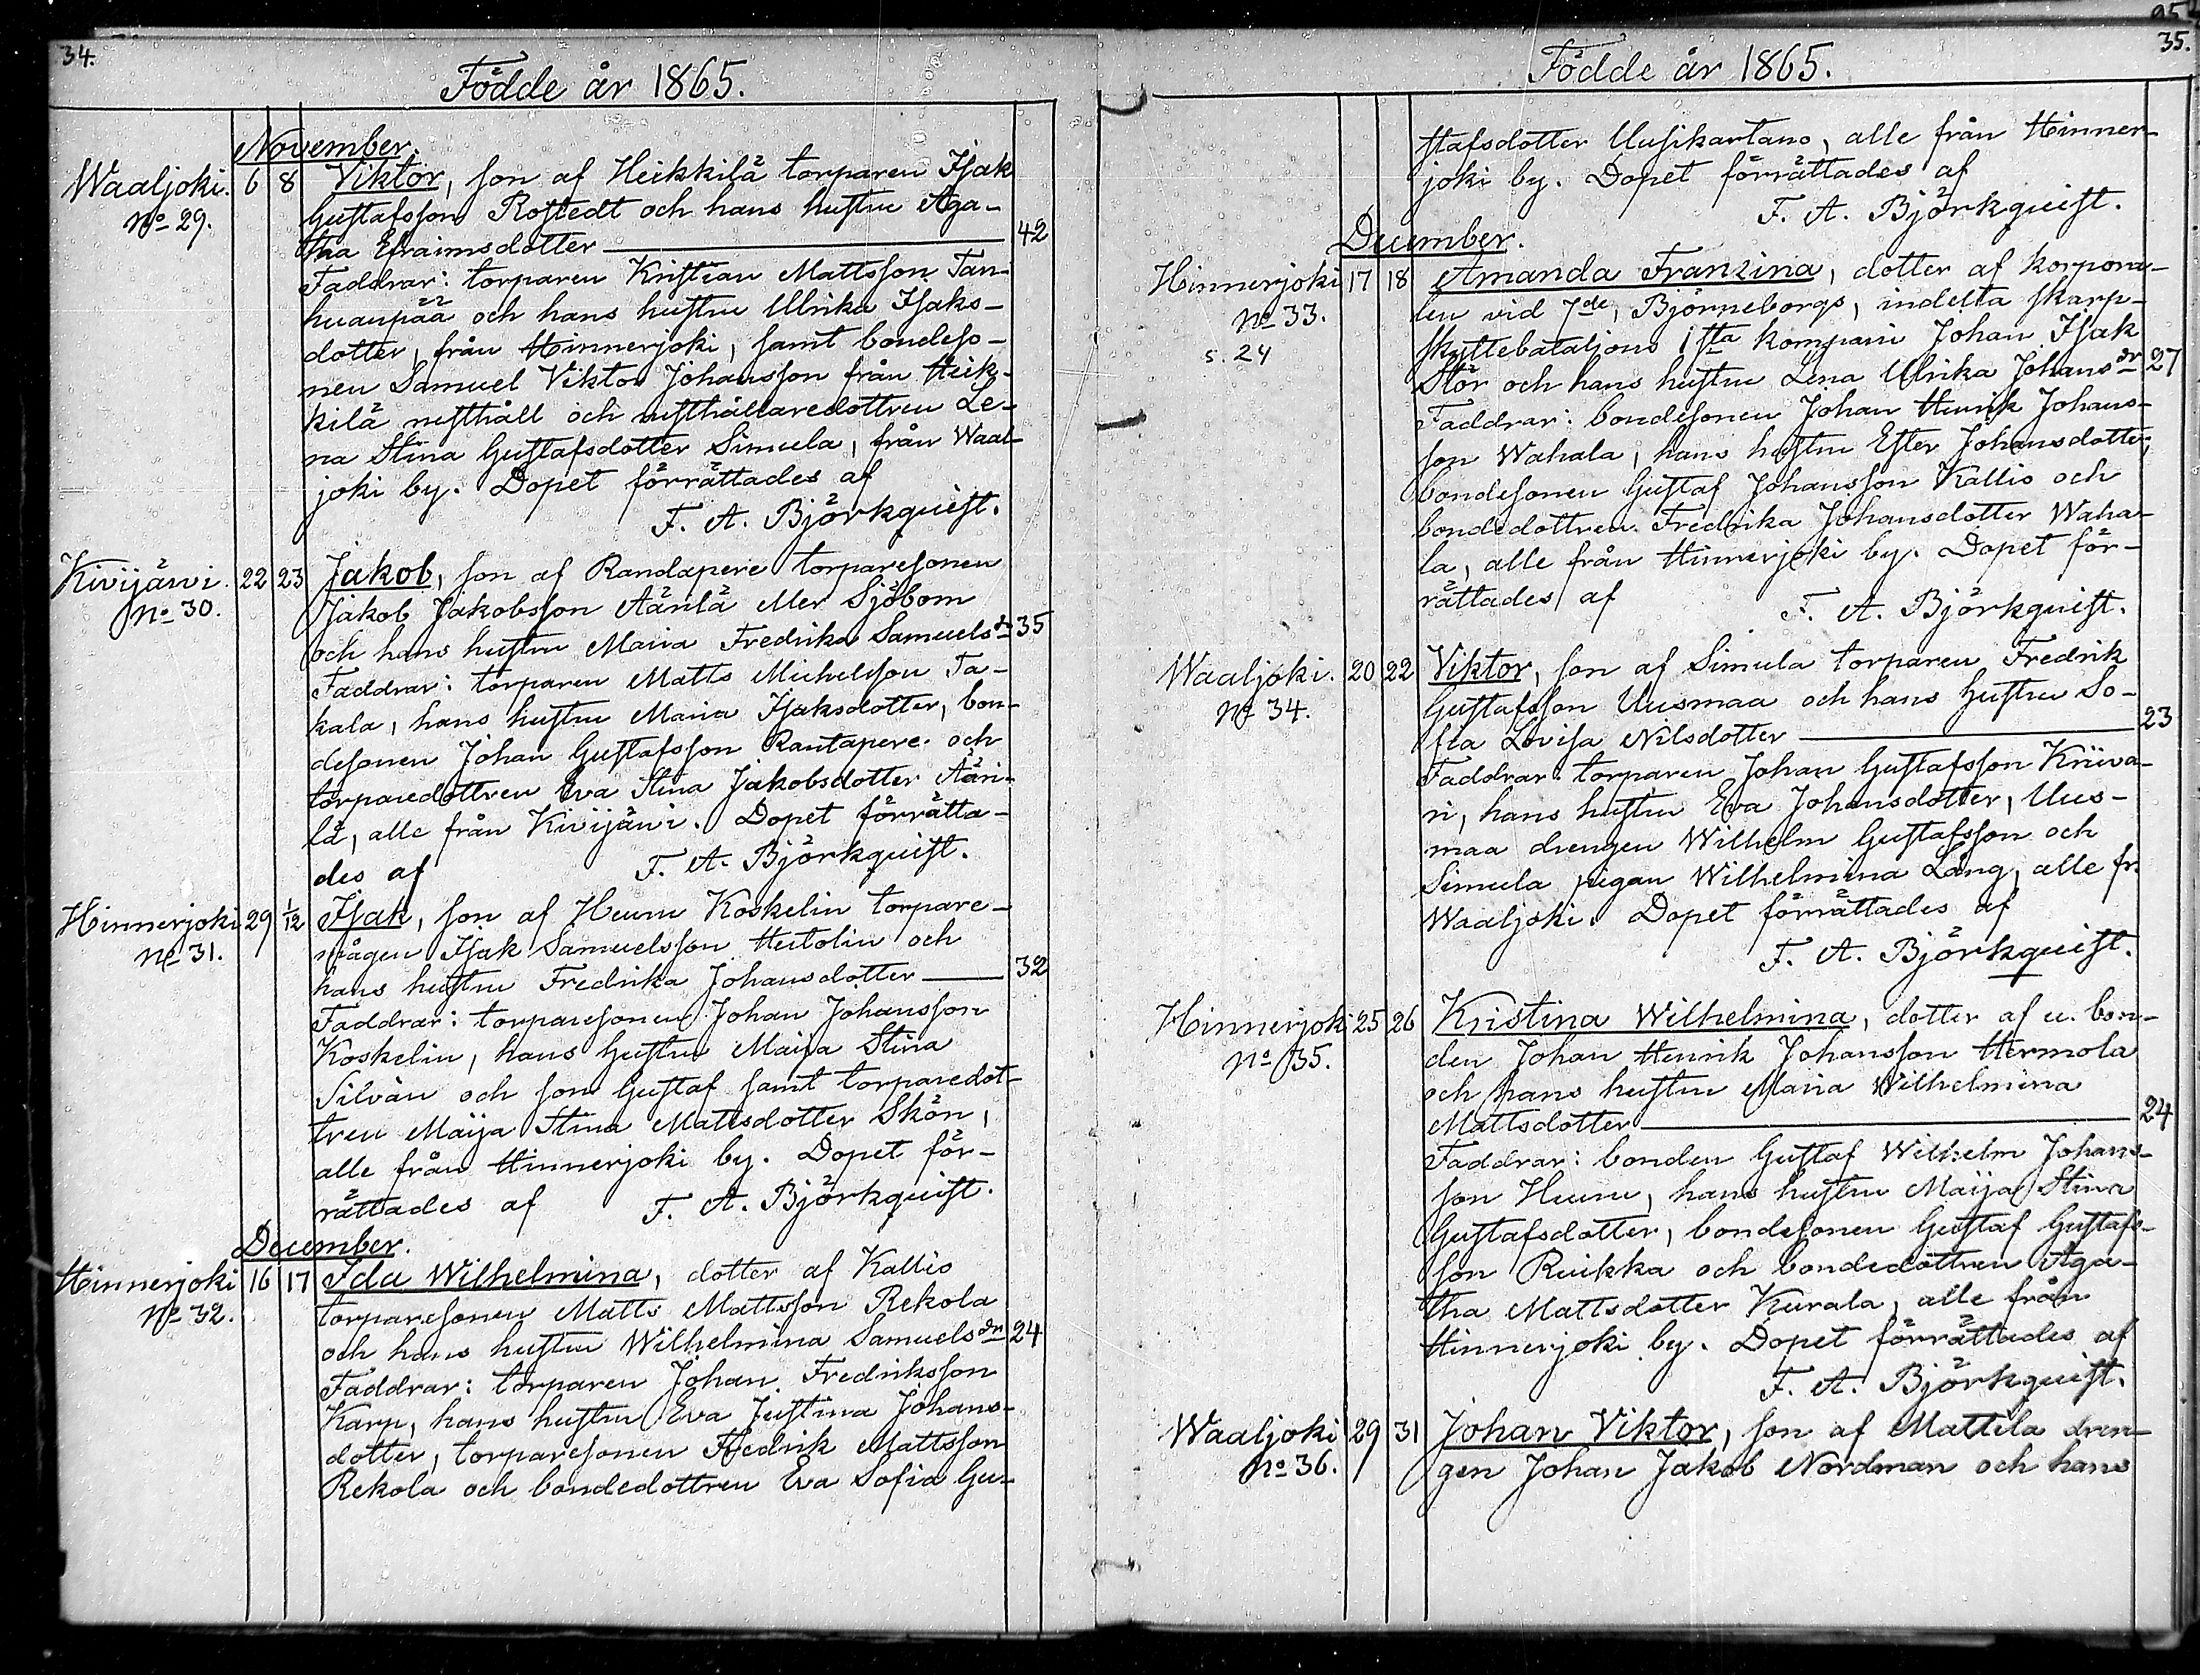 34.
Födde år 1865.
November.
Waaljoki. 6 8 Viktor, son af Heikkilä torparen Isak
No 29. Gustafsson Rostedt och hans hustru Aga-
tha Efraimsdotter 42
Faddrar: torparen Kristian Mattsson Tan-
huanpää och hans hustru Ulrika Isaks-
dotter, från Hinnerjoki, samt bondeso-
nen Samuel Viktor Johansson från Heik-
kilä rusthåll och rusthållaredottren Le-
na Stina Gustafsdotter Simula, från Waal-
joki by. Dopet förrättades af
F. A. Björkquist.
Kivijärvi. 22 23 Jakob, son af Randapere torparesonen
No 30. Jakob Jakobsson Äänlä eller Sjöbom
och hans hustru Maria Fredrika Samuelsdr 35
Faddrar: torparen Matts Michelsson Ta-
kala, hans hustru Maria Isaksdotter, bon-
desonen Johan Gustafsson Rantapere och
torparedottren Eva Stina Jakobsdotter Ääni-
lä, alle från Kivijärvi. Dopet förrätta-
des af F. A. Björkquist.
Hinnerjoki 29 1/12 Isak, son af Heunu Koskelin torpare-
No 31. mågen Isak Samuelsson Heitolin och
hans hustru Fredrika Johansdotter 32
Faddrar: torparesonen Johan Johansson
Koskelin, hans hustru Maija Stina
Silvän och son Gustaf samt torparedot-
tren Maija Stina Mattsdotter Skön,
alle från Hinnerjoki by. Dopet för-
rättades af F. A. Björkquist.
December.
Hinnerjoki 16 17 Ida Wilhelmina, dotter af Kallio
No 32. torparesonen Matts Mattsson Rekola
och hans hustru Wilhelmina Samuelsdr 24
Faddrar: torparen Johan Fredriksson
Karp, hans hustru Eva Justina Johans-
dotter, torparesonen Fredrik Mattsson
Rekola och bondedottren Eva Sofia Gu-
35.
Födde år 1865.
stafsdotter Uusikartano, alle från Hinner-
joki by. Dopet förrättades af
F. A. Björkquist.
December.
Hinnerjoki 17 18 Amanda Franzina, dotter af korpora-
No 33. len vid 7de, Björneborgs, indelta skarp-
s. 24 skyttebataljons 1sta kompani Johan Isak
Stör och hans hustru Lena Ulrika Johansdr 27
Faddrar: bondesonen Johan Henrik Johans-
son Wahala, hans hustru Ester Johansdotter,
bondesonen Gustaf Johansson Kallio och
bondedottren Fredrika Johansdotter Waha-
la, alle från Hinnerjoki by. Dopet för-
rättades af F. A. Björkquist.
Waaljoki. 20 22 Viktor, son af Simula torparen Fredrik
No 34. Gustafsson Uusmaa och hans hustru So-
fia Lovisa Nilsdotter 23
Faddrar: torparen Johan Gustafsson Kriiva-
ri, hans hustru Eva Johansdotter, Uus-
maa drengen Wilhelm Gustafsson och
Simula pigan Wilhelmina Lång, alle fr.
Waaljoki. Dopet förrättades af
F. A. Björkquist.
Hinnerjoki 25 26 Kristina Wilhelmina, dotter af u. bon-
No 35. den Johan Henrik Johansson Hermola
och hans hustru Maria Wilhelmina
Mattsdotter 24
Faddrar: bonden Gustaf Wilhelm Johans-
son Heunu, hans hustru Maija Stina
Gustafsdotter, bondesonen Gustaf Gustafs-
son Ruikka och bondedottren Aga-
tha Mattsdotter Kurala, alle från
Hinnerjoki by. Dopet förrättades af
F. A. Björkquist.
Waaljoki 29 31 Johan Viktor, son af Mattila dren-
No 36. gen Johan Jakob Nordman och hans